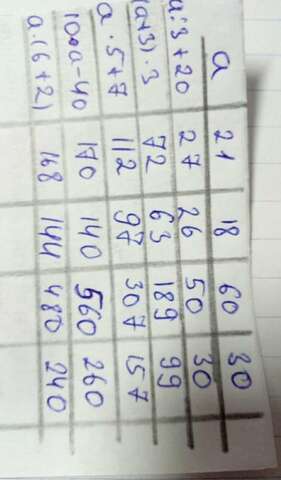 a 21 18 60 30
a:3+20 27 26 50 30
(a+3)·3 72 63 189 99
a·5+7 112 97 307 157
10·a-40 170 140 560 260
a·(6+2) 168 144 480 240